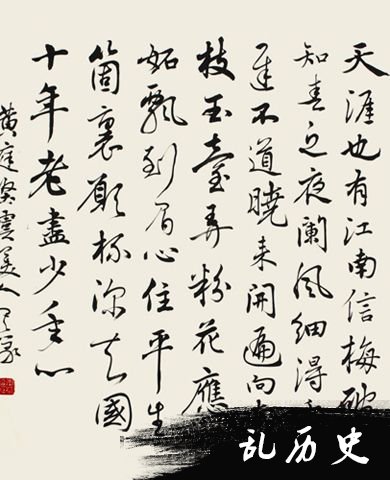 天涯也有江南信梅破
知春近夜闌風細得
遲不道曉来開遍向
枝玉臺弄粉花應
妬飄到眉心住平生
箇裏願杯深去國
十年老盡少年心
黄庭坚虞美人
乱历史